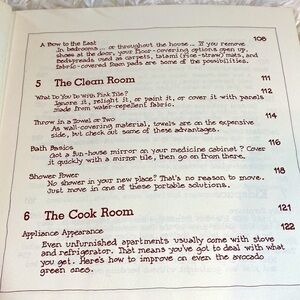 A Bow to the East 108
In bedrooms ... or throughout the house ... If you remove
shoes at the door, your floor-covering options open up.
Bedspreads used as carpets, tatami (rice-straw) mats, and
fabric-covered foam pads are some of the possibilities.
5 The Clean Room 111
What Do You Do With Pink Tile? 112
Ignore it, relight it, or paint it, or cover it with panels
made from water-repellent fabric.
Throw in a Towel or Two 114
As wall-covering material, towels are on the expensive
side, but check out some of these advantages.
Bath Basics 116
Got a fun-house mirror on your medicine cabinet? Cover
it quickly with a mirror tile, then go on from there.
Shower Power 118
No shower in your new place? That's no reason to move.
Just move in one of these portable solutions.
6 The Cook Room 121
Appliance Appearance 122
Even unfurnished apartments usually come with stove
and refrigerator. That means you've got to deal with what
you get. Here's how to improve on even the avocado
green ones.